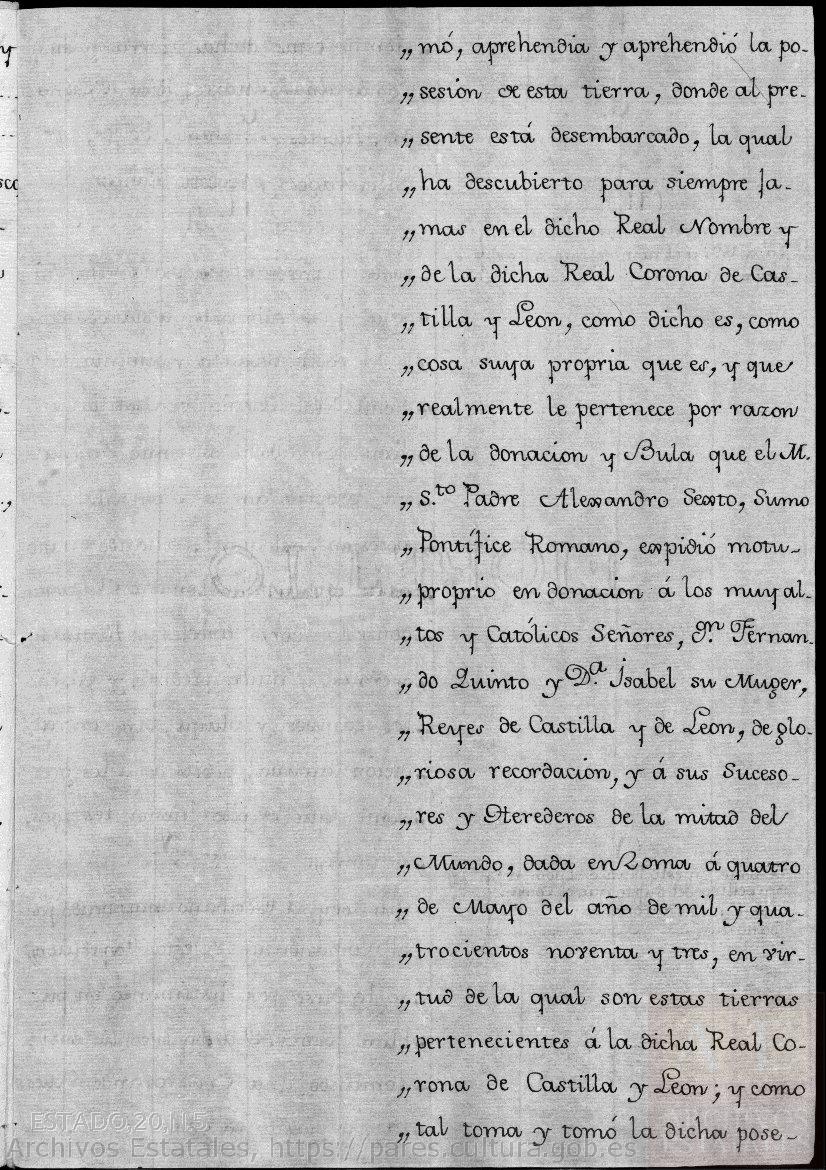 „mó, aprehendia y aprehendió la po-
„sesión de esta tierra, donde al pre-
„sente está desembarcado, la qual
„ha descubierto para siempre ja-
„mas en el dicho Real Nombre y
„de la dicha Real Corona de Cas-
„tilla y Leon, como dicho es, como
„cosa suya propria que es, y que
„realmente le pertenece por razon
„de la donacion y Bula que el M.
„S.to Padre Alexandro Sexto, Sumo
„Pontífice Romano, expidió motu-
„proprio en donacion á los muy al-
„tos y Católicos Señores, Dn. Fernan-
„do Quinto y D.a Isabel su Muger,
„Reyes de Castilla y de Leon, de glo-
„riosa recordacion, y á sus Suceso-
„res y Herederos de la mitad del
„Mundo, dada en Roma á quatro
„de Mayo del año de mil y qua-
„trocientos noventa y tres, en vir-
„tud de la qual son estas tierras
„pertenecientes á la dicha Real Co-
„rona de Castilla y Leon; y como
„tal toma y tomó la dicha pose-
ESTADO,20,N.5
Archivos Estatales, https://pares.cultura.gob.es